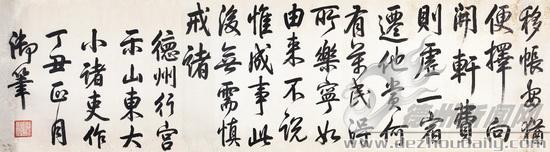 移帳安猶
便擇向
開軒費
則虛一宿
遷他貴何
有萬民得
所樂寧如
由來不說
惟成事此
後無需慎
戒諸
德州行宮
示山東大
小諸吏作
丁丑正月
御筆
德州新闻网
www.dezhoudaily.com